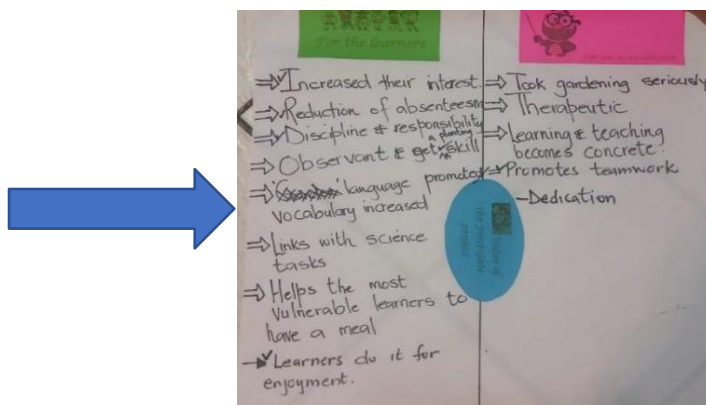 For the learners
⇒ Increased their interest
⇒ Reduction of absenteesm
⇒ Discipline & responsibility
⇒ Observant & get a planting skill
⇒ language promoted
vocabulary increased
⇒ Links with science
tasks
⇒ Helps the most
vulnerable learners to
have a meal
→ Learners do it for
enjoyment.
⇒ Took gardening seriously
⇒ Therapeutic
⇒ learning & teaching
becomes concrete.
→ Promotes teamwork
- Dedication
Value of
the
project